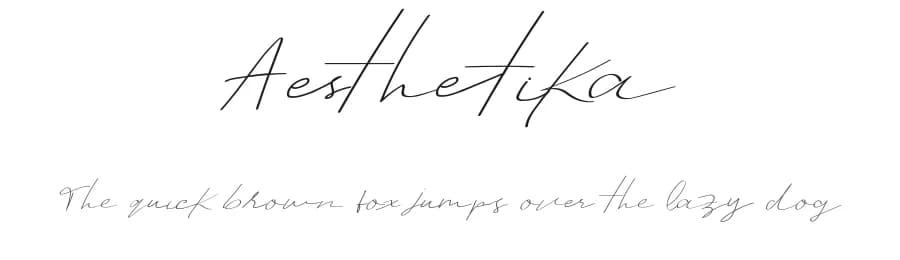 Aesthetika
The quick brown fox jumps over the lazy dog